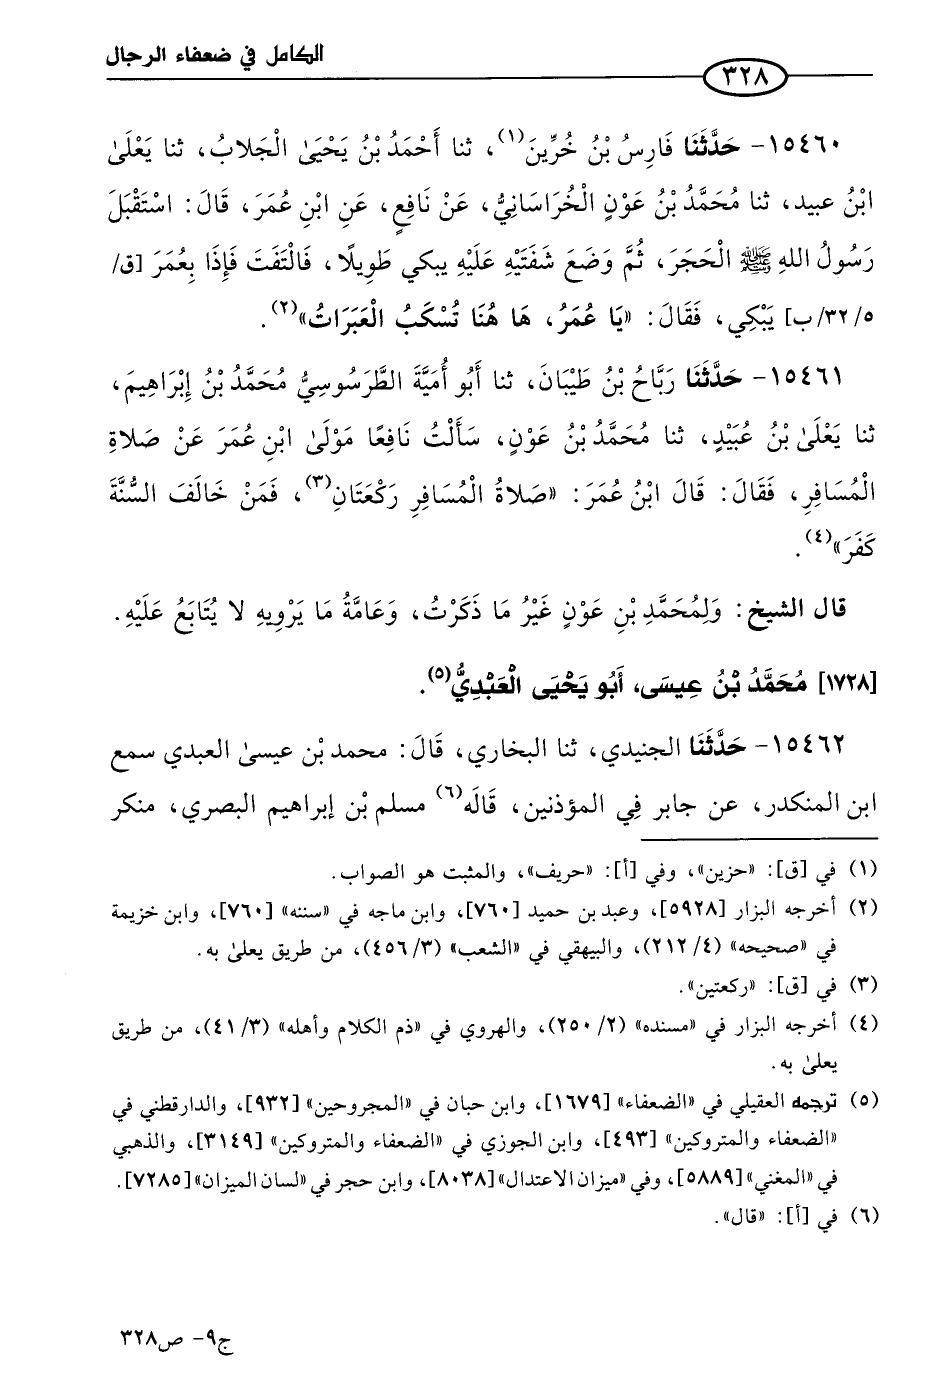 الكامل في ضعفاء الرجال
٣٢٨
١٥٤٦٠- حَدَّثَنَا فَارِسُ بْنُ خُرِّينَ(١)، ثنا أَحْمَدُ بْنُ يَحْيَىٰ الْجَلابُ، ثنا يَعْلَىٰ
ابْنُ عبيد، ثنا مُحَمَّدُ بْنُ عَوْنٍ الْخُرَاسَانِيُّ، عَنْ نَافِعٍ، عَنِ ابْنِ عُمَرَ، قَالَ: اسْتَقْبَلَ
رَسُولُ اللهِ ﷺ الْحَجَرَ، ثُمَّ وَضَعَ شَفَتَيْهِ عَلَيْهِ يبكي طَوِيلًا، فَالْتَفَتَ فَإِذَا بِعُمَرَ [ق/
٥/٣٢/ب] يَبْكِي، فَقَالَ: «يَا عُمَرُ، هَا هُنَا تُسْكَبُ الْعَبَرَاتُ»(٢).
١٥٤٦١- حَدَّثَنَا رَبَّاحُ بْنُ طَيْبَانَ، ثنا أَبُو أُمَيَّةَ الطَّرَسُوسِيُّ مُحَمَّدُ بْنُ إِبْرَاهِيمَ،
ثنا يَعْلَىٰ بْنُ عُبَيْدٍ، ثنا مُحَمَّدُ بْنُ عَوْنٍ، سَأَلْتُ نَافِعًا مَوْلَىٰ ابْنِ عُمَرَ عَنْ صَلاةِ
الْمُسَافِرِ، فَقَالَ: قَالَ ابْنُ عُمَرَ: «صَلاةُ الْمُسَافِرِ رَكْعَتَانِ(٣)، فَمَنْ خَالَفَ السُّنَّةَ
كَفَرَ»(٤).
قال الشيخ: وَلِمُحَمَّدِ بْنِ عَوْنٍ غَيْرُ مَا ذَكَرْتُ، وَعَامَّةُ مَا يَرْوِيهِ لا يُتَابَعُ عَلَيْهِ.
[١٧٢٨] مُحَمَّدُ بْنُ عِيسَى، أَبُو يَحْيَى الْعَبْدِيُّ(٥).
١٥٤٦٢- حَدَّثَنَا الجنيدي، ثنا البخاري، قَالَ: محمد بْن عيسىٰ العبدي سمع
ابن المنكدر، عن جابر فِي المؤذنين، قَالَه(٦) مسلم بْن إبراهيم البصري، منكر
(١) في [ق]: «حزين»، وفي [أ]: «حريف»، والمثبت هو الصواب.
(٢) أخرجه البزار [٥٩٢٨]، وعبد بن حميد [٧٦٠]، وابن ماجه في «سننه» [٧٦٠]، وابن خزيمة
في «صحيحه» (٤/ ٢١٢)، والبيهقي في «الشعب» (٣/ ٤٥٦)، من طريق يعلىٰ به.
(٣) في [ق]: «ركعتين».
(٤) أخرجه البزار في «مسنده» (٢/ ٢٥٠)، والهروي في «ذم الكلام وأهله» (٣/ ٤١)، من طريق
يعلىٰ به.
(٥) ترجمه العقيلي في «الضعفاء» [١٦٧٩]، وابن حبان في «المجروحين» [٩٣٢]، والدارقطني في
«الضعفاء والمتروكين» [٤٩٣]، وابن الجوزي في «الضعفاء والمتروكين» [٣١٤٩]، والذهبي
في «المغني» [٥٨٨٩]، وفي «ميزان الاعتدال» [٨٠٣٨]، وابن حجر في «لسان الميزان» [٧٢٨٥].
(٦) في [أ]: «قال».
ج٩- ص٣٢٨